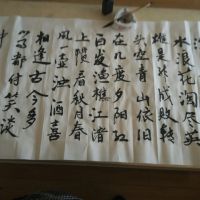 水浪花淘尽英
雄是非成败转
头空青山依旧
在几度夕阳红
白发渔樵江渚
上惯看秋月春
风一壶浊酒喜
相逢古今多
少事都付笑谈
中